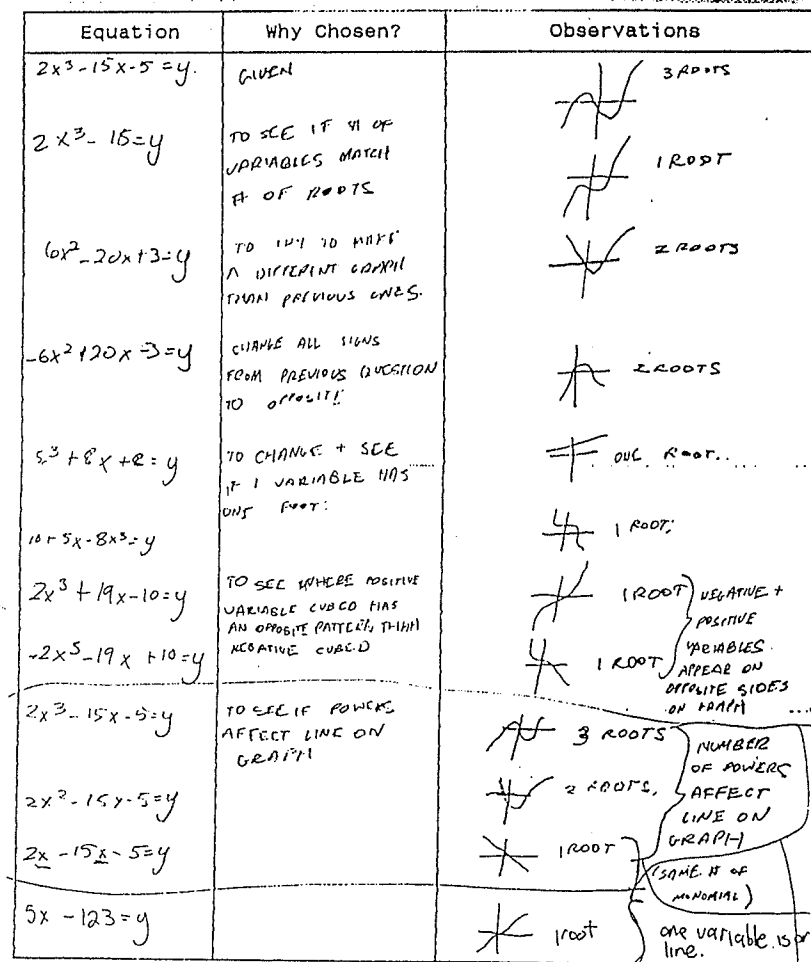 Equation Why Chosen? Observations
2x³-15x-5=y. GIVEN 3 ROOTS
2x³-15=y TO SEE IF # OF
VARIABLES MATCH
# OF ROOTS
1 ROOT
6x²-20x+3=y TO TRY TO MAKE
A DIFFERENT GRAPH
THAN PREVIOUS ONES.
2 ROOTS
-6x²+20x-3=y CHANGE ALL SIGNS
FROM PREVIOUS QUESTION
TO OPPOSITE
2 ROOTS
5³+8x+8=y TO CHANGE + SEE
IF 1 VARIABLE HAS
ONE ROOT.
ONE ROOT..
10+5x-8x³=y 1 ROOT.
2x³+19x-10=y TO SEE WHERE POSITIVE
VARIABLE CUBED HAS
AN OPPOSITE PATTERN THAN
NEGATIVE CUBED
1 ROOT
-2x³-19x+10=y 1 ROOT
NEGATIVE +
POSITIVE
VARIABLES
APPEAR ON
OPPOSITE SIDES
ON GRAPH
2x³-15x-5=y TO SEE IF POWERS
AFFECT LINE ON
GRAPH
3 ROOTS
2x²-15x-5=y 2 ROOTS.
2x-15x-5=y 1 ROOT
NUMBER
OF POWERS
AFFECT
LINE ON
GRAPH
(SAME # OF
MONOMIAL)
5x-123=y 1 root
one variable is
line.